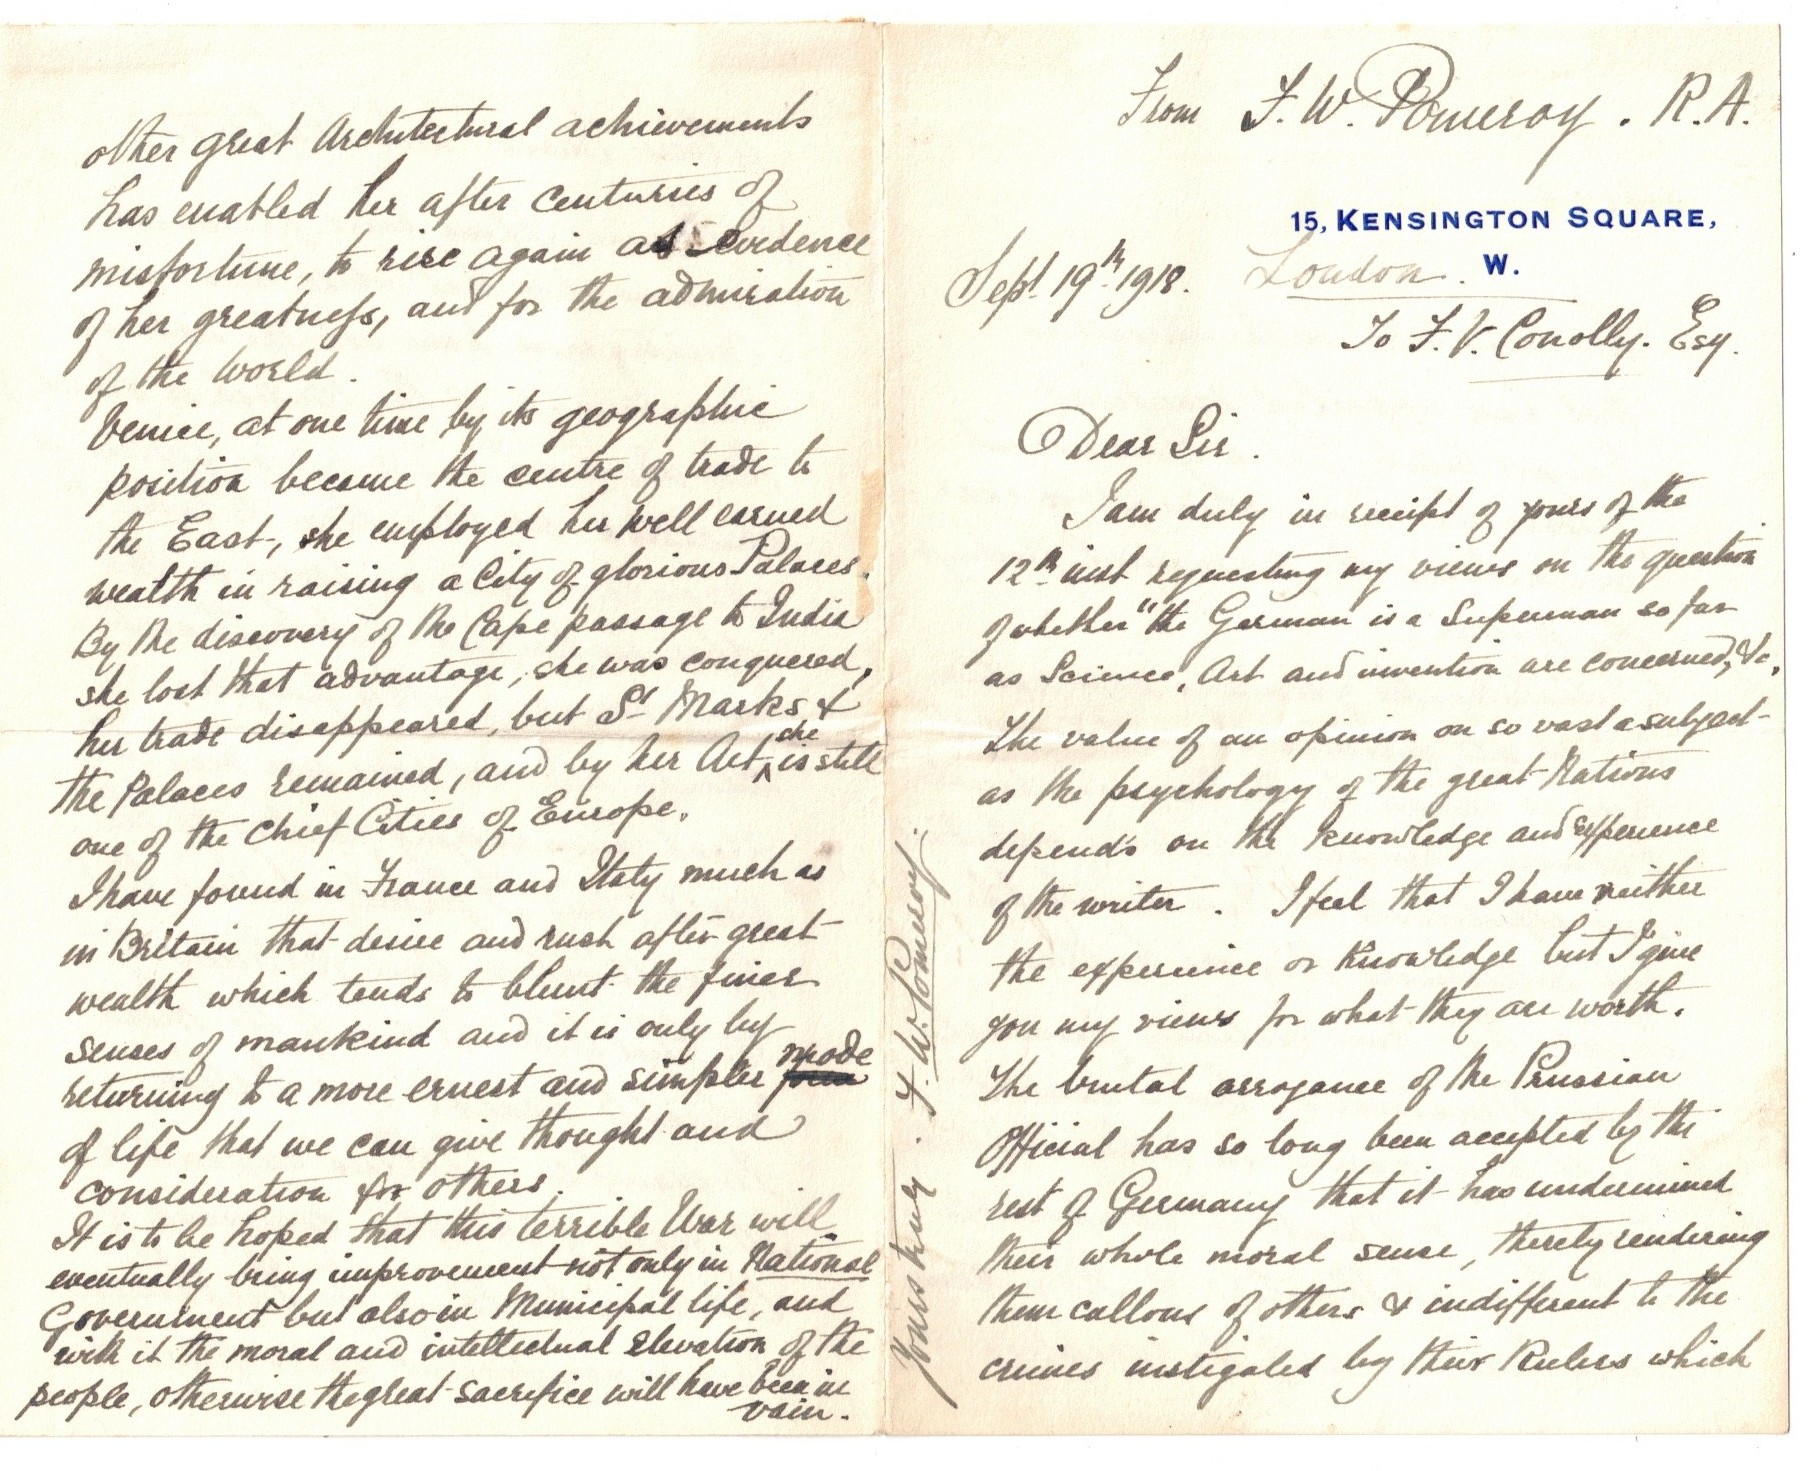 From F. W. Pomeroy. R.A.
15, KENSINGTON SQUARE,
London. W.
Sept 19th 1918.
To F. V. Conolly. Esq.
Dear Sir.
I am duly in receipt of yours of the
12th inst requesting my views on the question
of whether "the German is a Superman so far
as Science, Art and invention are concerned, &c.
The value of an opinion on so vast a subject
as the psychology of the great Nations
depends on the knowledge and experience
of the writer. I feel that I have neither
the experience or knowledge but I give
you my views for what they are worth.
The brutal arrogance of the Prussian
Official has so long been accepted by the
rest of Germany that it has undermined
their whole moral sense, thereby rendering
them callous of others & indifferent to the
crimes instigated by their Rulers which
other great Architectural achievements
has enabled her after centuries of
misfortune, to rise again as evidence
of her greatness, and for the admiration
of the world.
Venice, at one time by its geographic
position became the centre of trade to
the East, she employed her well earned
wealth in raising a City of glorious Palaces.
By the discovery of the Cape passage to India
she lost that advantage, she was conquered,
her trade disappeared, but St Marks &
the Palaces remained, and by her Art she is still
one of the chief Cities of Europe.
I have found in France and Italy much as
in Britain that desire and rush after great
wealth which tends to blunt the finer
senses of mankind and it is only by
returning to a more ernest and simpler mode
of life that we can give thought and
consideration for others.
It is to be hoped that this terrible War will
eventually bring improvement not only in National
Government but also in Municipal life, and
with it the moral and intellectual elevation of the
people, otherwise the great sacrifice will have been in
vain.
Yours truly. F. W. Pomeroy.